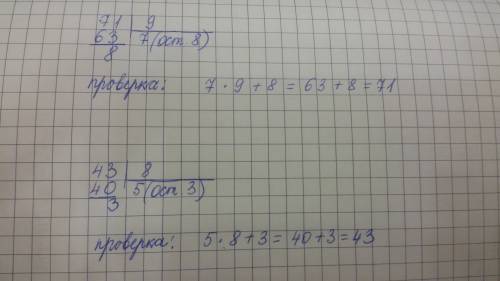 71 9
63 7(ост 8)
8
проверка: 7 · 9 + 8 = 63 + 8 = 71
43 8
40 5(ост 3)
3
проверка: 5 · 8 + 3 = 40 + 3 = 43